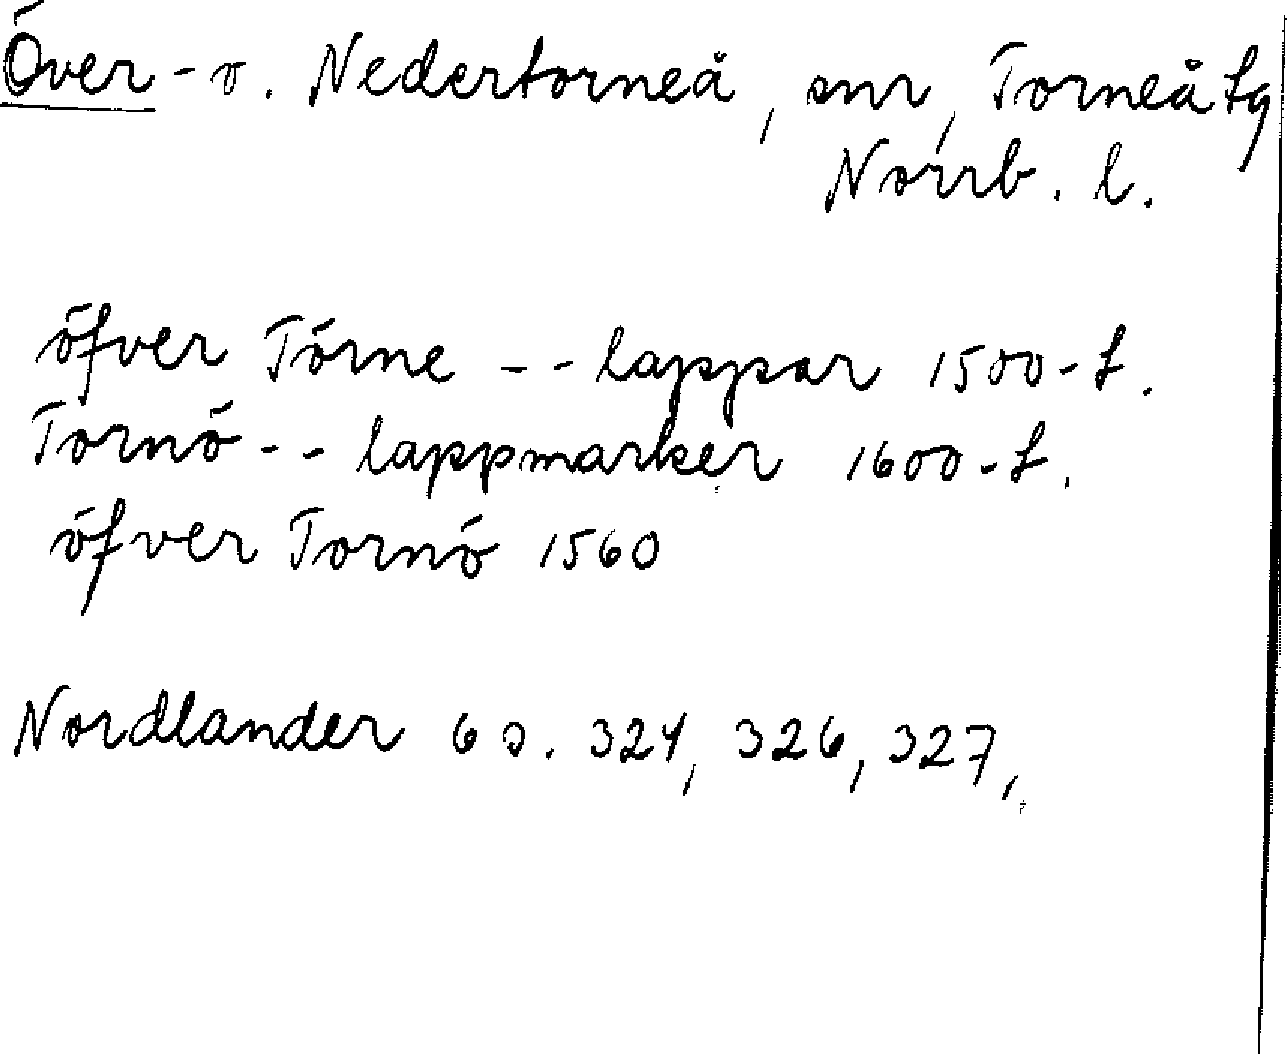 Över- o. Nedertorneå, snr, Torneå tg
Norrb. l.
öfver Törne -- lappar 1500-t.
Tornö -- lappmarker 1600-t.
öfver Tornö 1560
Nordlander 6 s. 324, 326, 327,